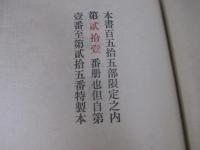 本書百五拾五部限定之內
第貳拾壹番册也但自第
壹番至第貳拾五番特製本